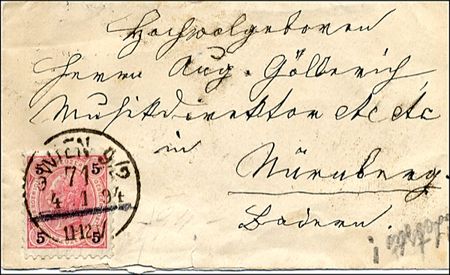 Hochwolgeboren
Herrn Aug. Göllerich,
Musikdirektor etc etc
in
Nürnberg.
Baiern.
WIEN 9/2
71
4 1 94
11-12
5 5
5 5